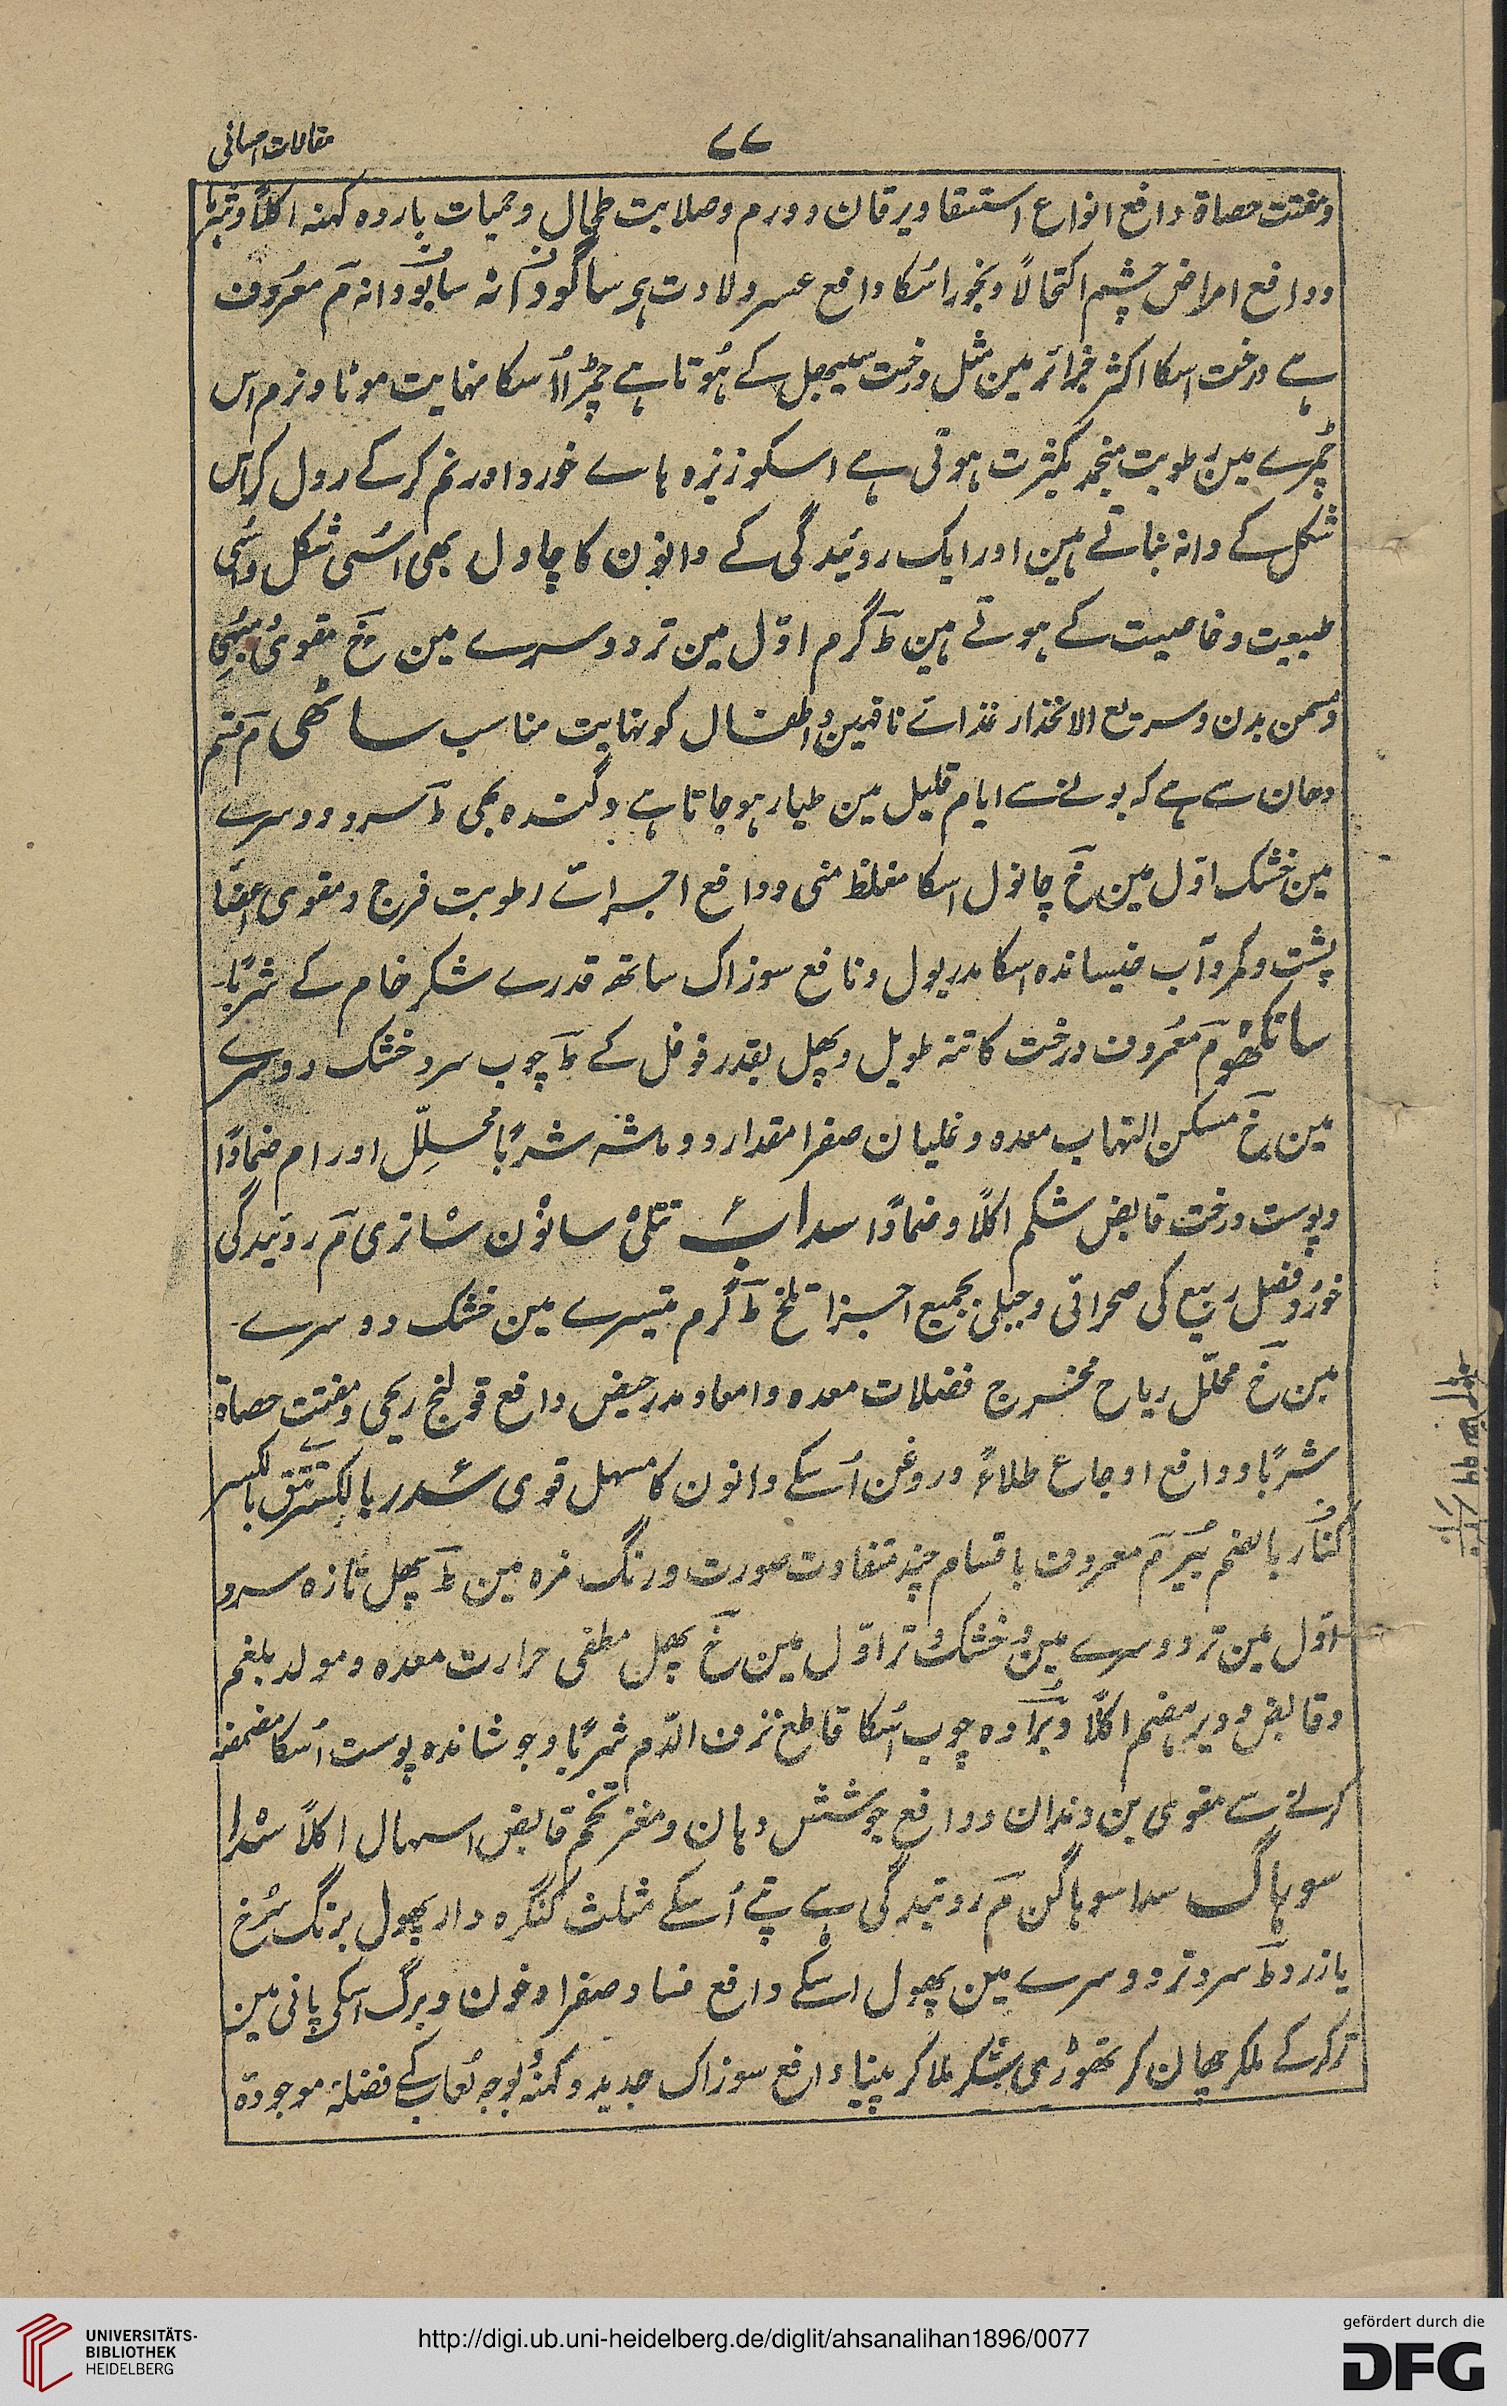 ۷۷
مقالات احسانی
ومفتت حصاة دافع انواع استسقا ویرقان وورم وصلابت طحال وحمیات باردہ کہنہ اکلاً وشربا
ودافع امراض چشم اکتحالاً وبخور اسکا دافع عسر ولادت ہی ساگودانہ سابودانہ م معروف
ہے درخت اسکا اکثر جزائر مین مثل درخت کے ہوتا ہے چمڑا اُسکا نہایت موٹا ونرم اس
چمڑے مین رطوبت منجمد بکثرت ہوتی ہے اسکو ریزہ ہاے خورد اور نم کرکے رول کر اس
شکل کے دانہ بناتے ہین اور ایک روئیدگی کے دانون کا چاول بھی اسی شکل واُسی
طبیعت وخاصیت کے ہوتے ہین ط گرم اوّل مین تر دوسرے مین خ مقوی
ومسمن بدن وسریع الانحدار غذاے ناقہین واطفال کو نہایت مناسب ساٹھی م قسم
دھان سے ہے کہ بونے سے ایام قلیل مین طیار ہو جاتا ہے وگندہ بھی ط سرد دوسرے
مین خشک اوّل مین خ چانول اسکا مغلظ منی ودافع اجراے رطوبت فرج ومقوی اعضا
پشت وکمر وآب خیساندہ اسکا مدر بول ونافع سوزاک ساتھ قدرے شکر خام کے شرباً
سانکھو م معروف درخت کا تنہ طویل وپھل بقدر فوفل کے ط چوب سرد خشک دوسرے
مین خ مسکن التہاب معدہ وغلیان صفرا مقدار دو ماشہ شرباً محلِّل اورام ضماداً
وپوست درخت قابض شکم اکلاً وضماداً سداب تتلی ساتون شاتری م روئیدگی
خورد فصل ربیع کی صحرائی وجبلی بجمیع اجزا تلخ ط گرم تیسرے مین خشک دوسرے
مین خ محلّل ریاح مخرج فضلات معدہ وامعا ومدر حیض دافع قولنج ریحی ومفتت حصاة
شرباً ودافع اوجاع طلاءً وروغن اُسکے دانون کا مسہل قوی سدر بالکسر بالکسر
کنار بالضم بیر م معروف باقسام چند متفاوت صورت ورنگ مزہ مین ط پھل تازہ سرد
اوّل مین تر دوسرے مین وخشک تر اوّل مین خ پھل مطفی حرارت معدہ ومولد بلغم
وقابض ودیر ہضم اکلاً وبُرادہ چوب اُسکا قاطع نزف الدّم شرباً وجوشاندہ پوست اُسکا مضمضہ
کرنے سے مقوی بن دندان ودافع جوشش دہان ومغز تخم قابض اسہال اکلاً سدا
سوہاگ سدا سوہاگن م روئیدگی ہے پتے اُسکے مثلث کنگرہ دار پھول برنگ سُرخ
یا زرد ط سرد تر دوسرے مین پھول اسکے دافع فساد صفرا وخون وبرگ اسکی پانی مین
تر کرکے ملکر چھان کر تھوڑی شکر ملا کر پینا دافع سوزاک جدید وکہنہ بوجہ لعاب کے فضلۂ موجودہ
UNIVERSITÄTS-
BIBLIOTHEK
HEIDELBERG
http://digi.ub.uni-heidelberg.de/diglit/ahsanalihan1896/0077
gefördert durch die
DFG